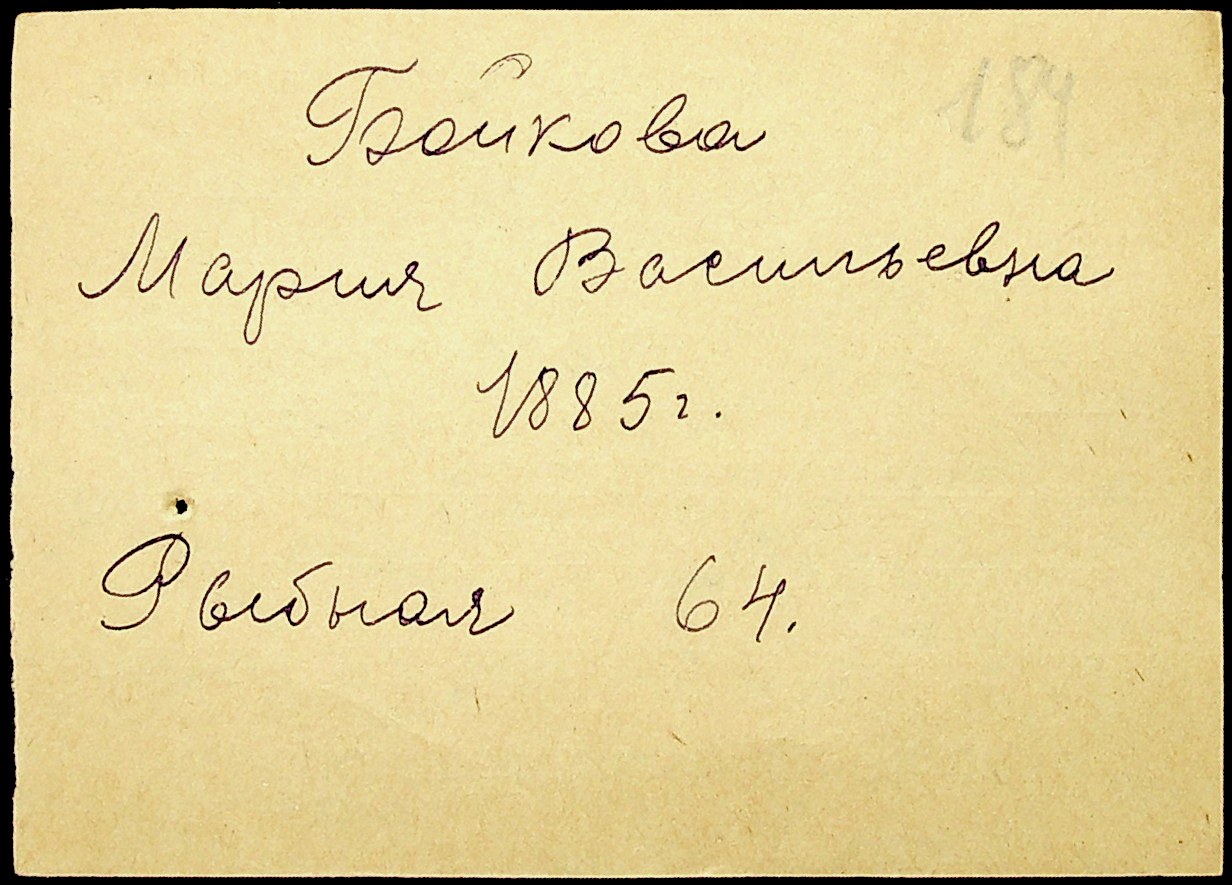 184
Бойкова
Мария Васильевна
1885 г.
Рыбная 64.